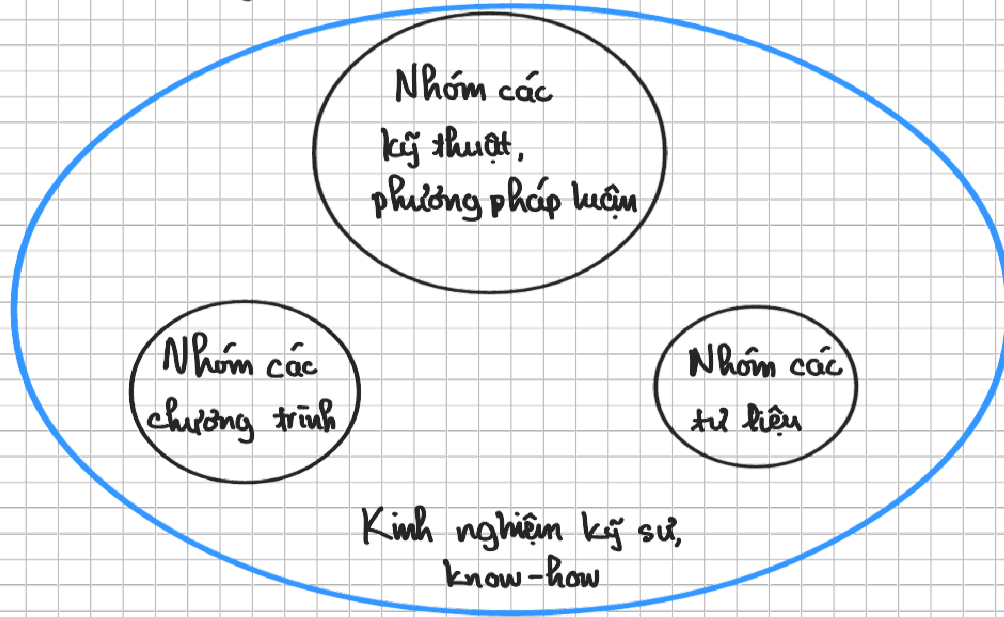 Nhóm các
kỹ thuật,
phương pháp luận
Nhóm các
chương trình
Nhóm các
tư liệu
Kinh nghiệm kỹ sư,
know-how